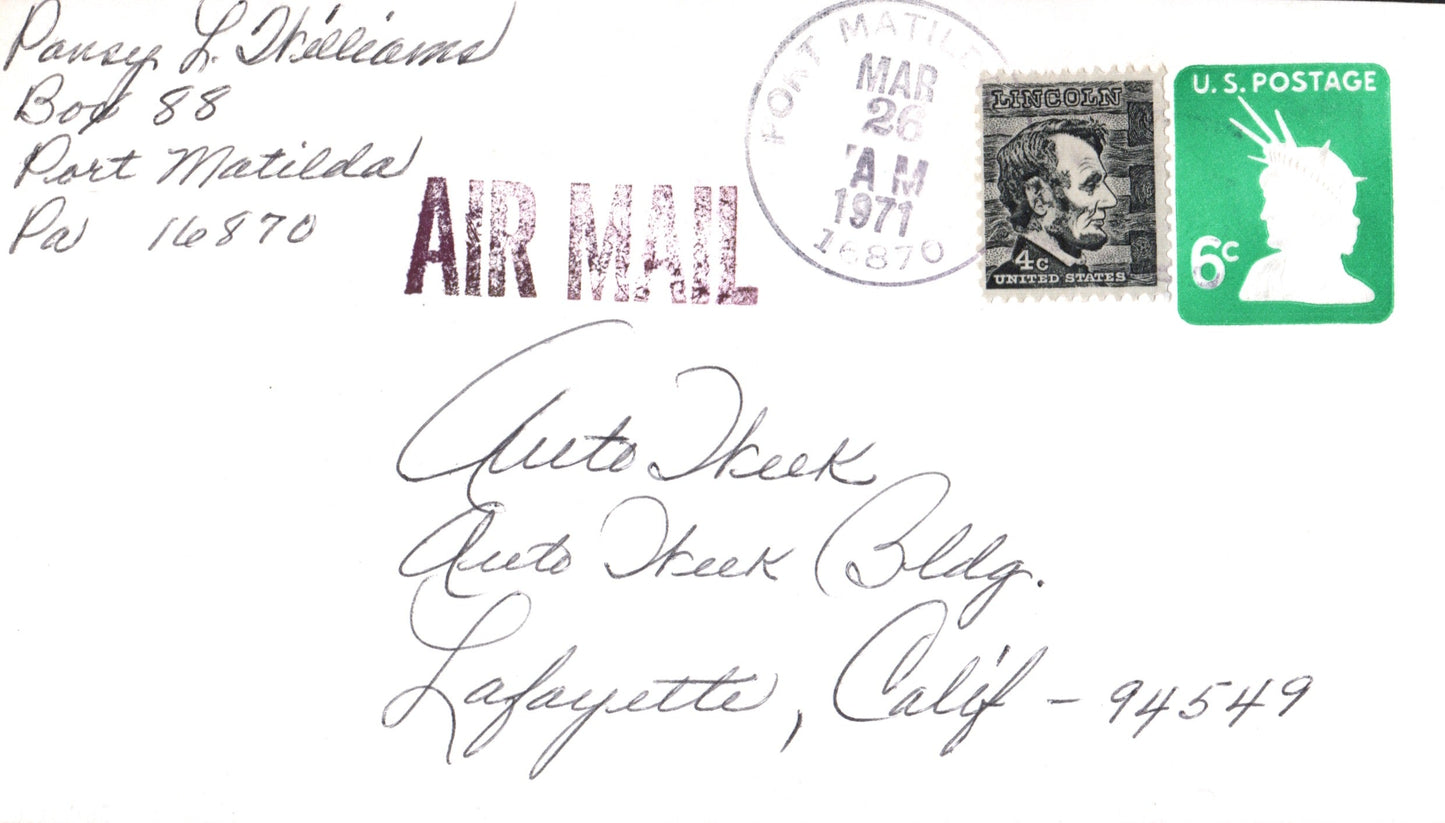 Pansy L. Williams
Box 88
Port Matilda
Pa 16870
AIR MAIL
PORT MATILD
MAR
26
AM
1971
16870
LINCOLN
4c
UNITED STATES
U.S. POSTAGE
6c
Auto Week
Auto Week Bldg.
Lafayette, Calif - 94549